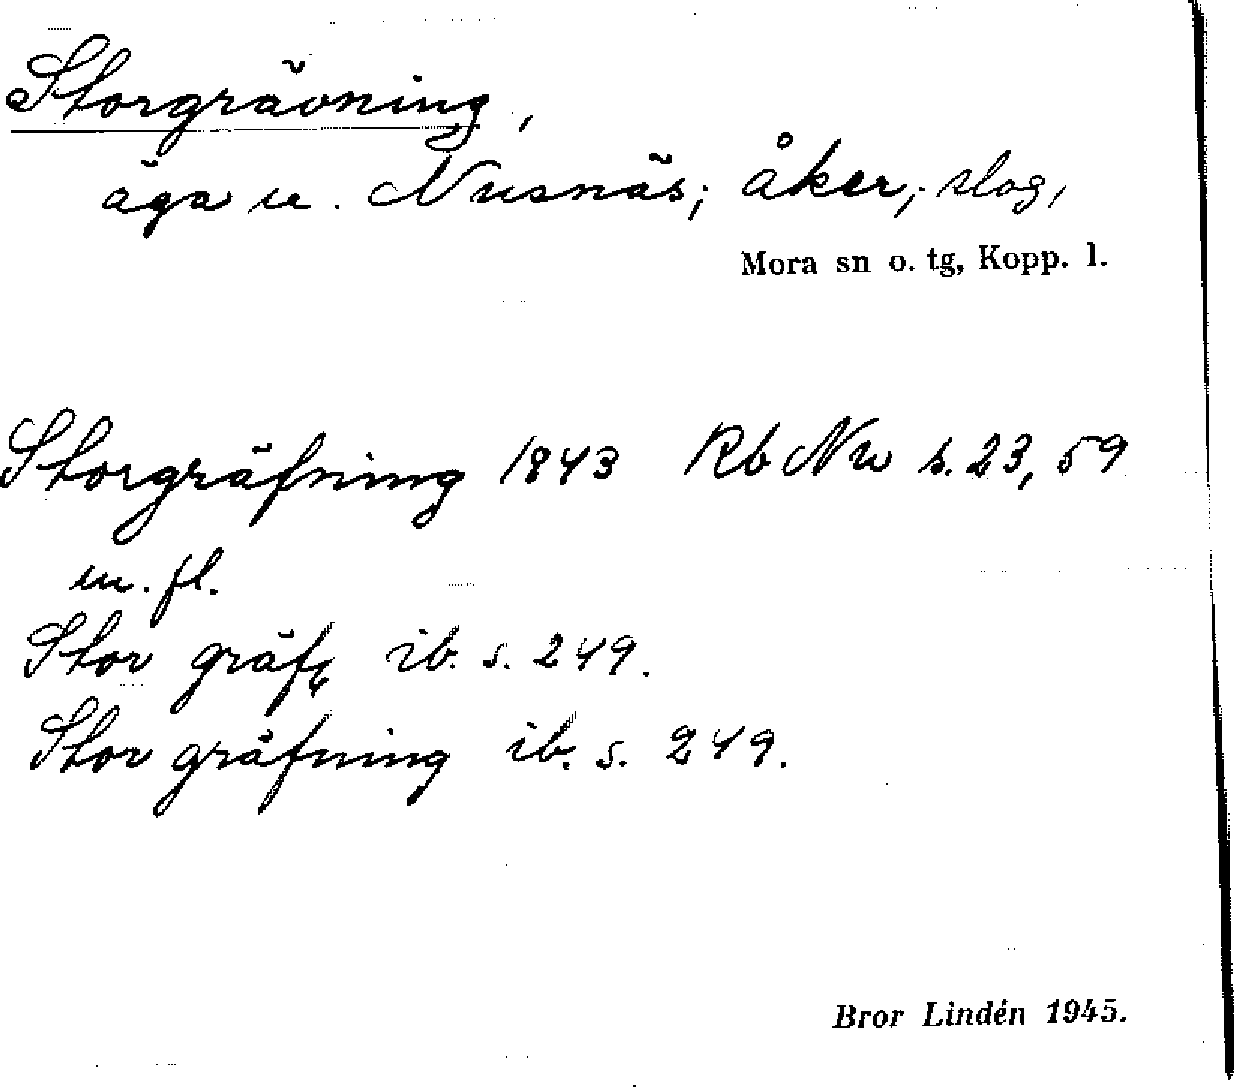 Storgrävning,
äga u. Nusnäs; åker, slog,
Mora sn o. tg, Kopp. l.
Storgräfning 1843 Rb Nu s. 23, 59
m. fl.
Stor gräf ib. s. 249.
Stor gräfning ib. s. 249.
Bror Lindén 1945.